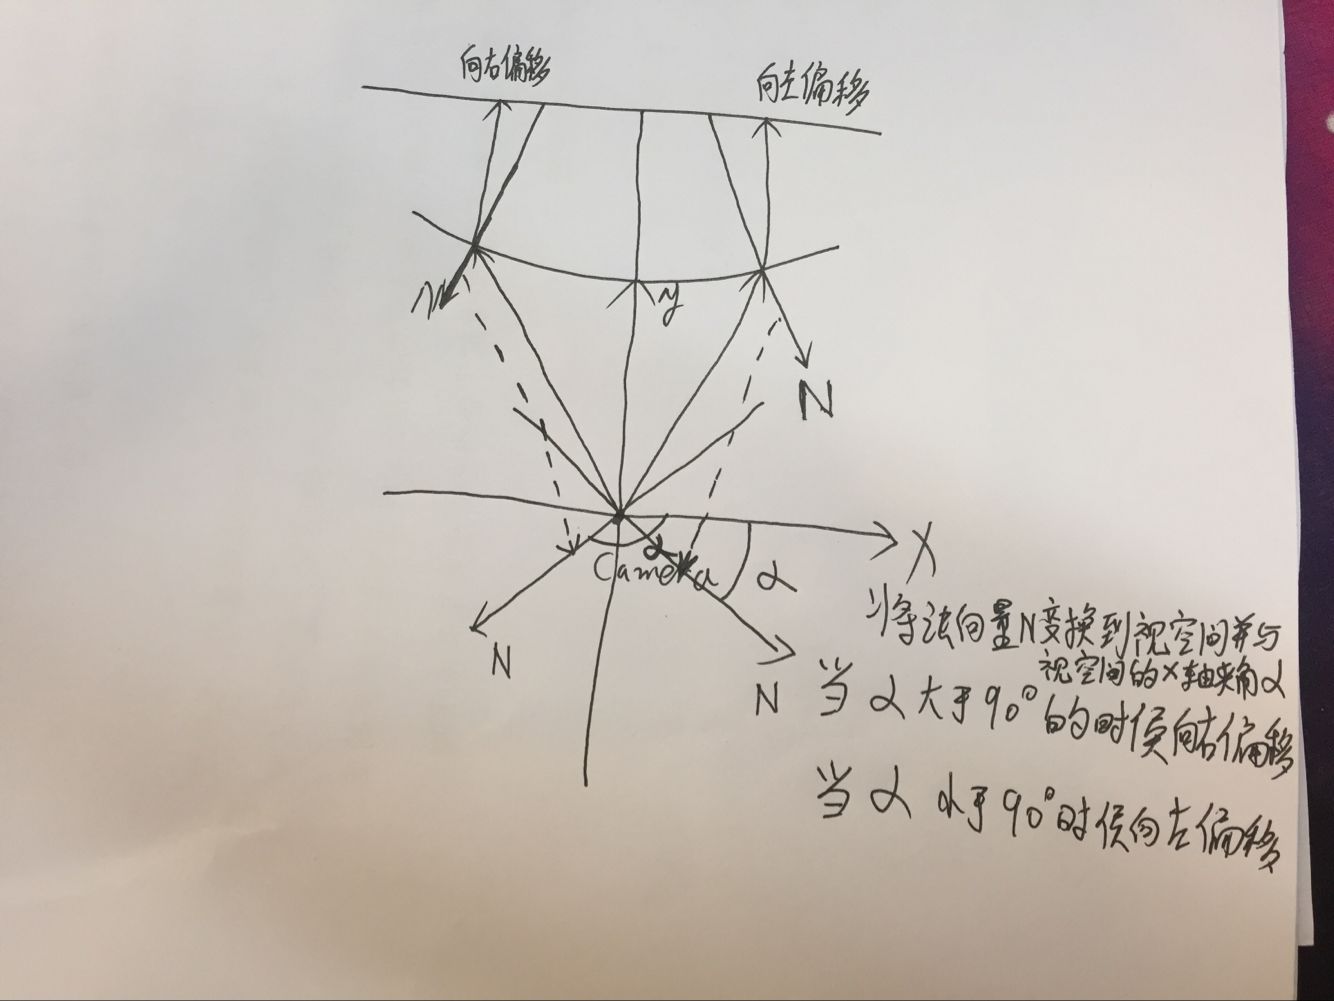 向右偏移
向左偏移
N
y
N
X
α
Camera
α
N
N
将法向量N变换到视空间并与
视空间的X轴夹角α
当α大于90°的时候向右偏移
当α小于90°时候向左偏移